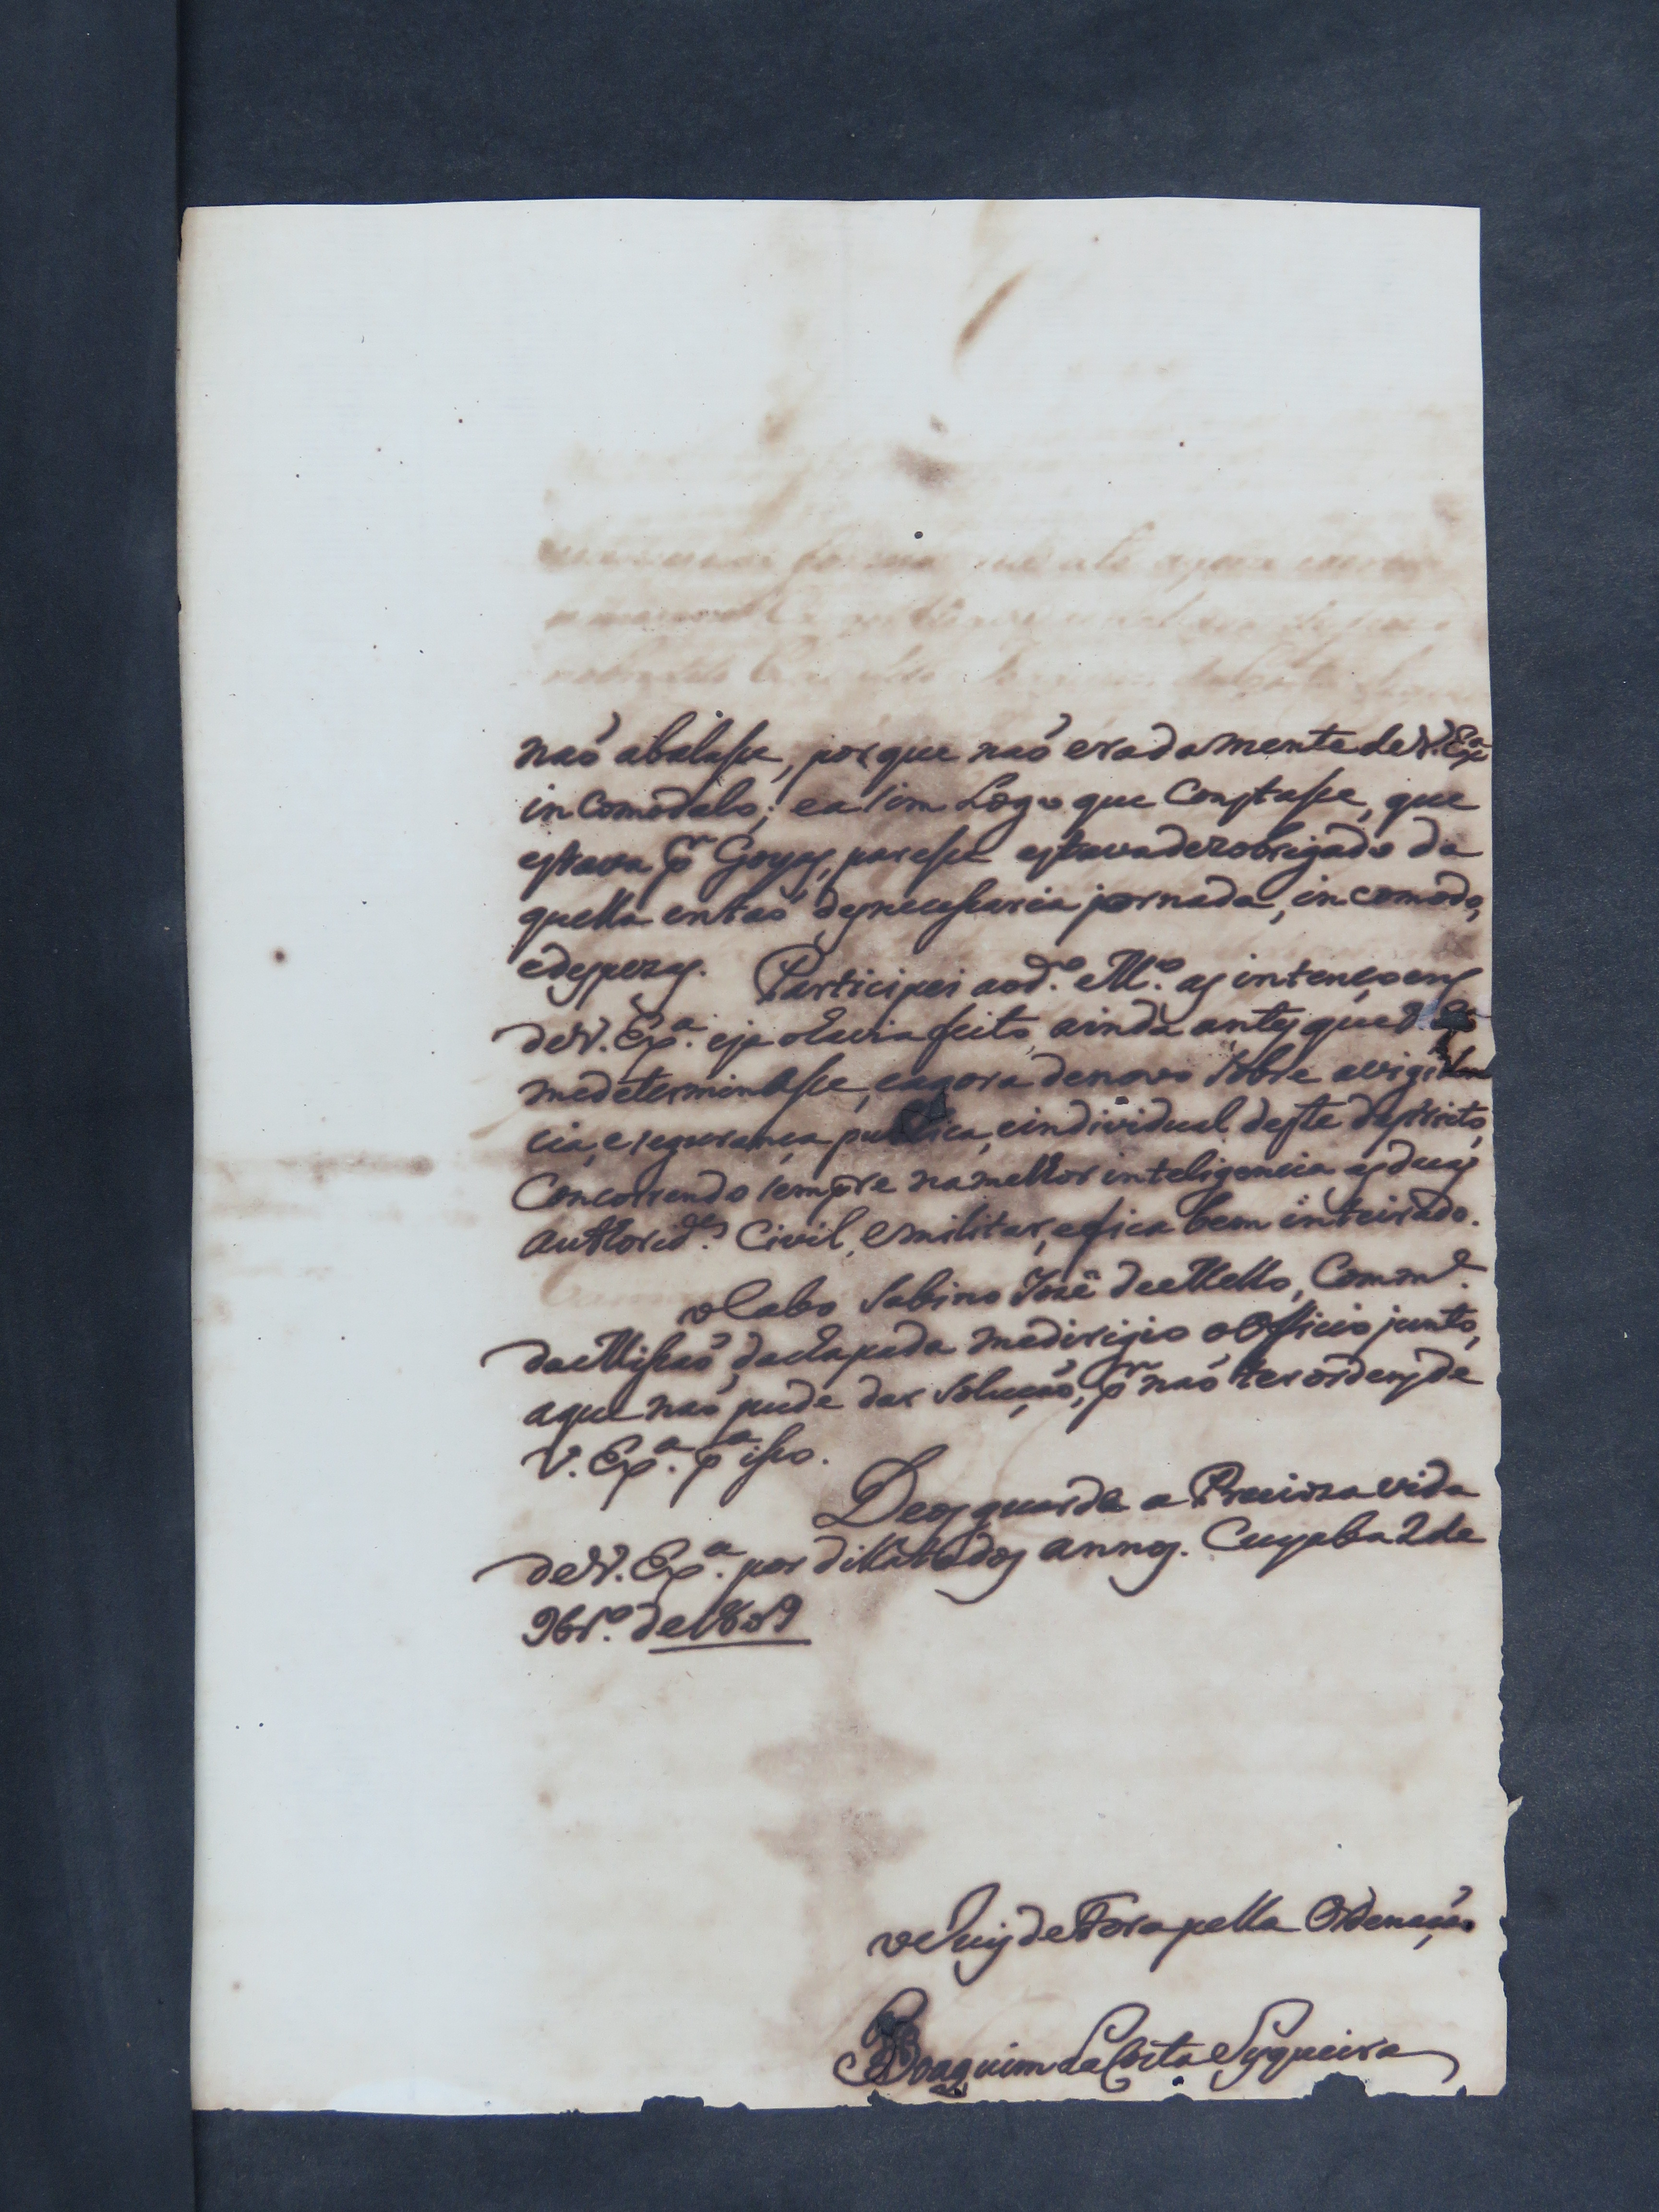 naõ abalasse, porque naõ era da mente de V. Exª
incomodalo; easim Logo que Constasse, que
estava pr Goyas, paresse estava dezobrigado da
quella entaõ desnecessaria jornada, incomodo,
edespezas. Participei aod.º M.º as intençoens
de V. Exª. eja o havia feito ainda antes que V.
medeterminasse, eagora denovo sobre avigilan
cia, e segurança publica, eindividual deste destrito,
Concorrendo sempre na melhor inteligencia as duas
authorid.es Civil, e militar, efica bem inteirado.
o Cabo Sabino José de Mello, Comm.e
da Missaõ da chapada medirigio o Officio junto,
aque naõ pude dar Soluçaõ, pr naõ ter ordens de
V. Exª. pª isso.
Deos guarde a Precioza vida
de V. Exª. por dillatados annos. Cuyaba 2 de
9br.º de 1809
o Juis de Fora pella Ordenaçaõ
Joaquim da Costa Syqueira